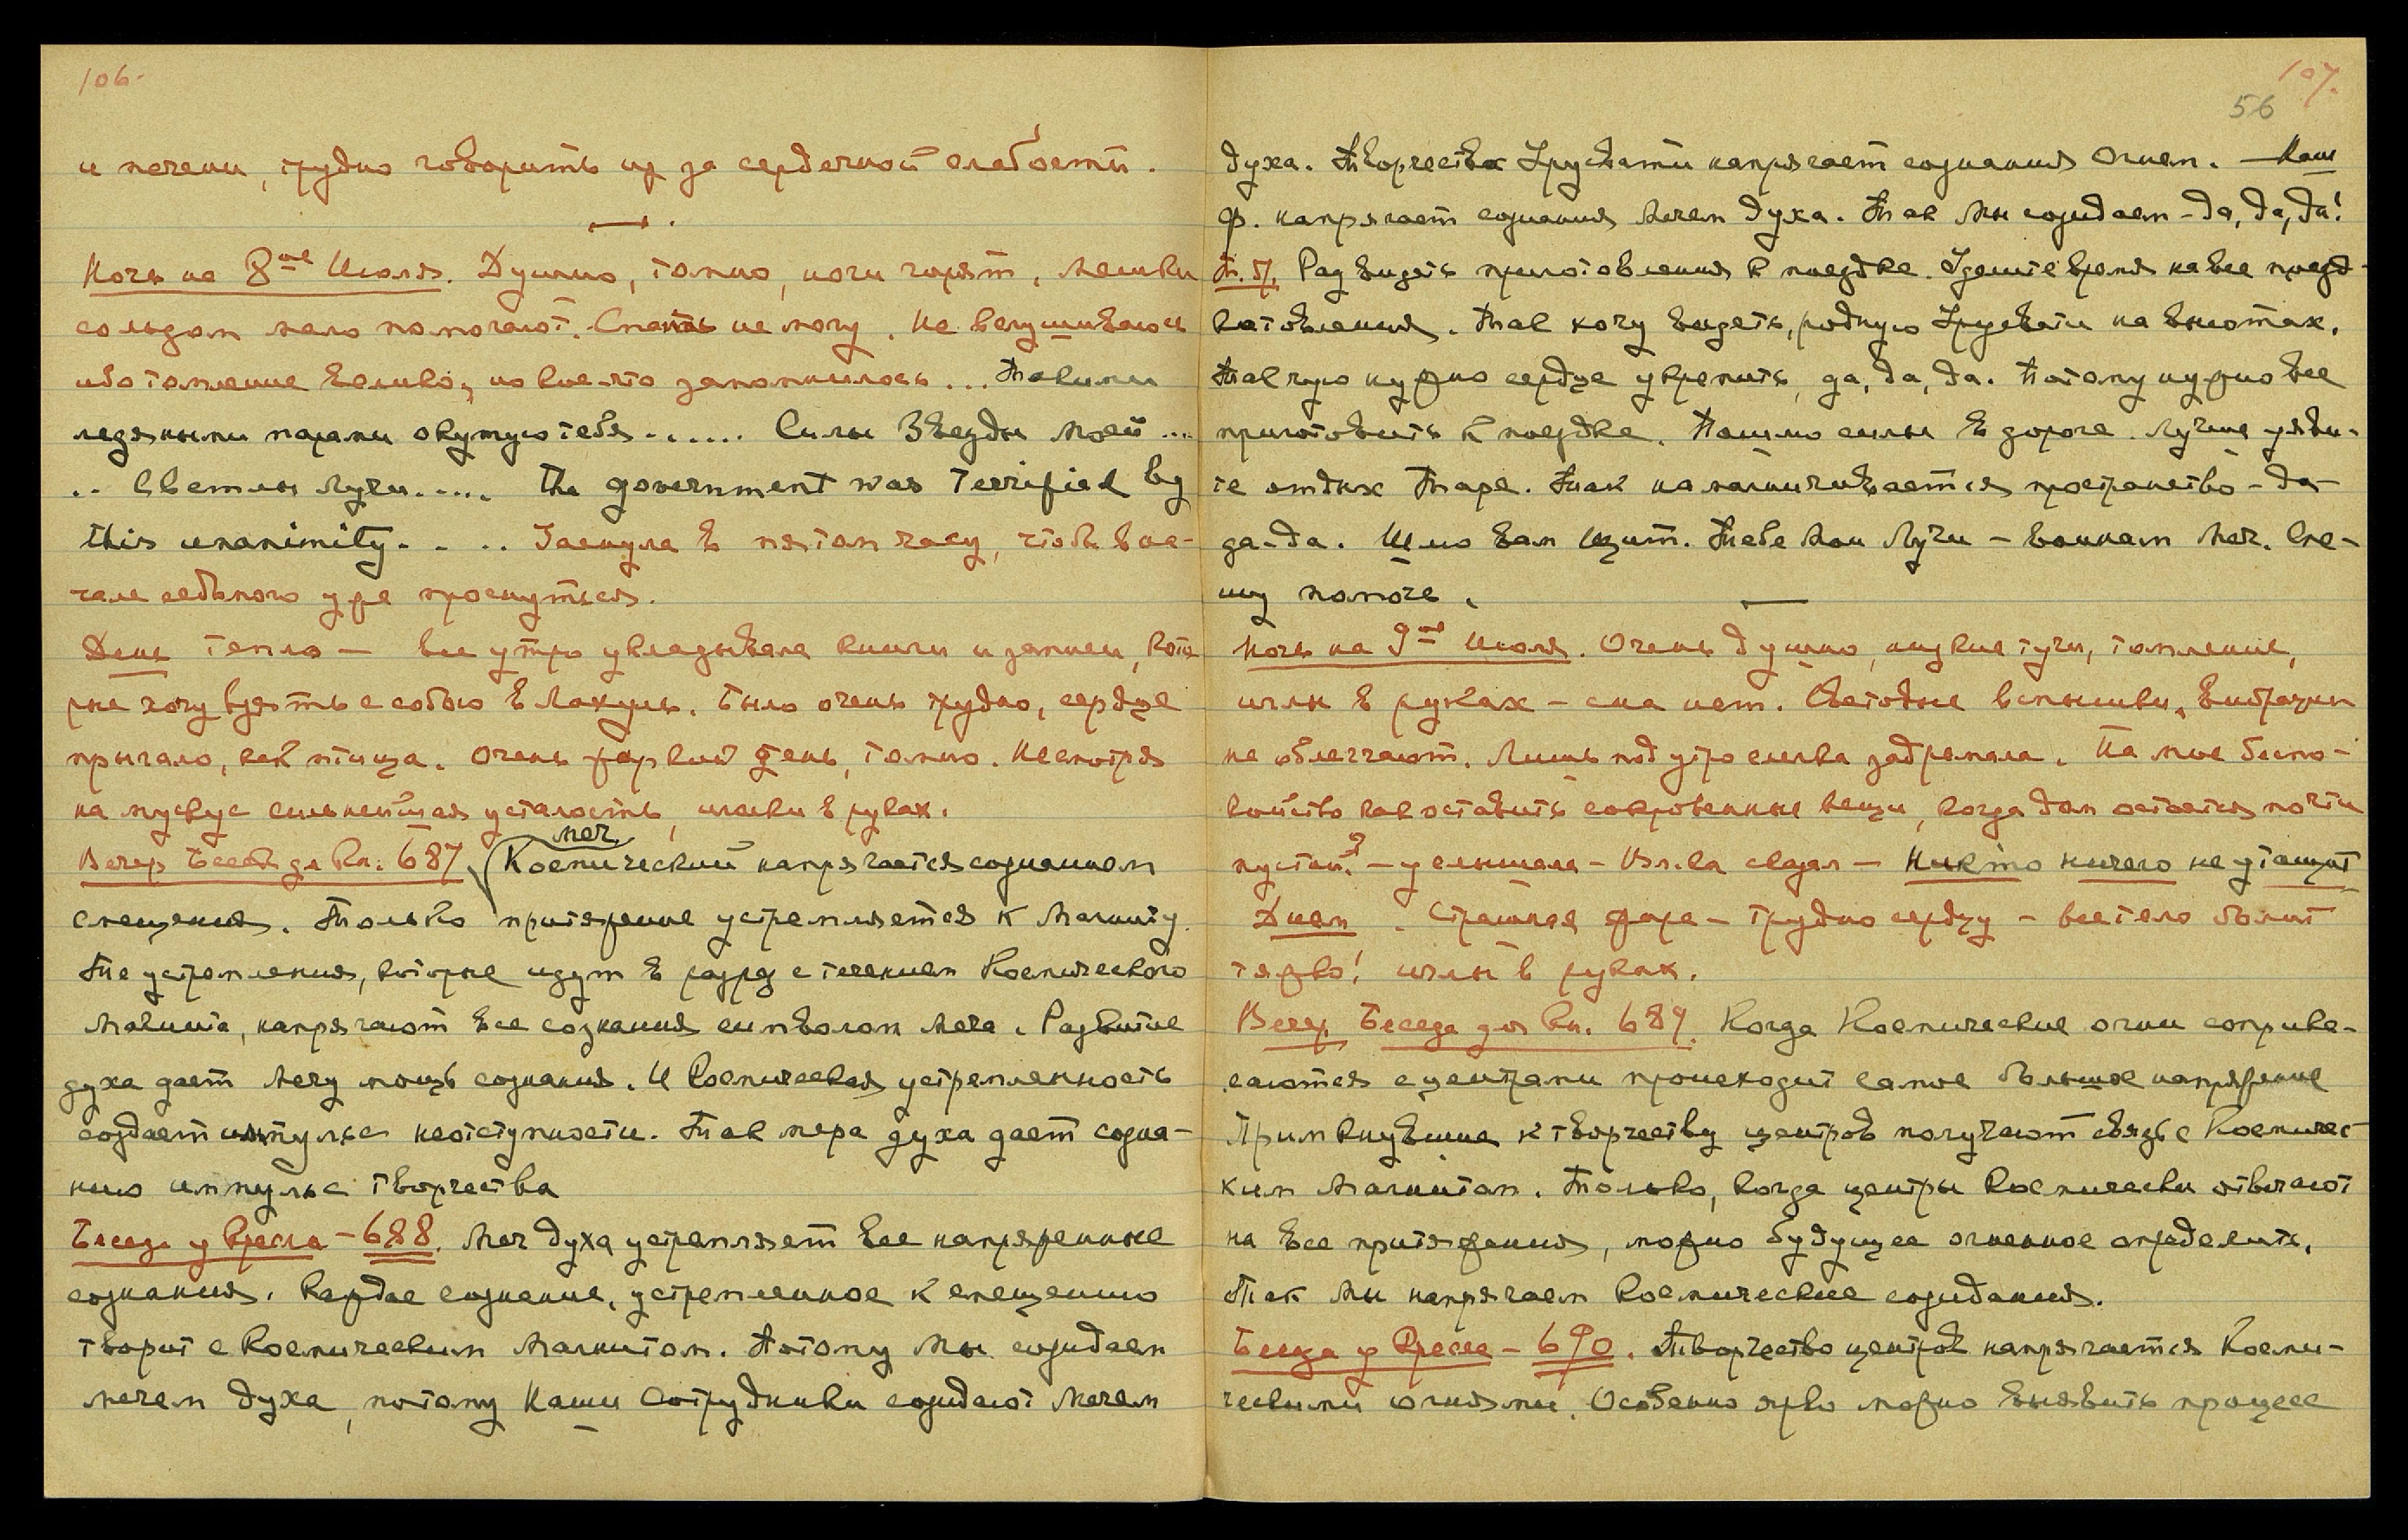 106.
и печени, трудно говорить из за сердечной слабости.
Ночь на 8ое Июля. Душно, томно, ноги горят, мешки
со льдом мало помогают. Спать не могу. Не вслушиваюсь
ибо томление велико, но кое-что запомнилось... Такими
ледяными парами окутую тебя...... Силы Звезды Моей ...
.. Светлы Лучи..... The government was Terrified by
this unanimity. . .. Заснула в пятом часу, чтобы в на-
чале седьмого уже проснуться.
День тепло — все утро укладывала книги и записи, кото
рые хочу взять с собою в Лахуль. Было очень трудно, сердце
прыгало, как птица. Очень жаркий день, томно. Несмотря
на мускус сильнейшая усталость, иголки в руках.
меч
Вечер Бесед для Кн. 687 Космический напрягается сознанием
смещения. Только притяжение устремляется к Магниту.
Те устремления, которые идут в разрез с течением Космического
Магнита, напрягают все сознания символом Меча. Развитие
духа дает Мечу мощь сознания. И Космическая устремленность
создает импульс неотступности. Так мера духа дает созна-
нию импульс творчества
Беседа у Кресла - 688. Меч духа устремляет все напряженные
сознания. Каждое сознание, устремленное к смещению
творит с Космическим Магнитом. Потому Мы созидаем
мечем духа, потому Наши Сотрудники созидают Мечем
107.
56
духа. Творчество Урусвати напрягает сознания Огнем. — Наш
Ф. напрягает сознания Мечем духа. Так Мы созидаем - да, да, да!
Рад видеть приготовления к поездке. Удешите время на все
готовления. Так хочу видеть, родную Урусвати на высотах.
Так нужно сердце укрепить, да, да, да. Потому нужно все
приготовить к поездке. Пошлю силы в дороге. Лучше
те отдых Таре. Так намагничивается пространство - да-
да-да. Шлю вам Щит. Тебе Мои Лучи — воинам Меч. Спе-
шу помочь.
Ночь на 9ое Июля. Очень душно, низкие тучи, томление,
иглы в руках - сна нет. Световые вспышки, вибрации
не облегчают. Лишь под утро слегка задремала. На мое беспо-
койство как оставить сокровенные вещи, когда дом остается почти
пустой? - услышала - Вл.-ка сказал — Никто ничего не утащит
Днем. Страшная жара - трудно сердцу - все тело болит
тяжко! иглы в руках.
Вечер, Беседа для Кн. 689. Когда Космические огни соприка-
саются с центрами происходит самое большое напряжение
Примкнувшие к творчеству центров получают связь с Космичес-
ким Магнитом. Только, когда центры Космически отвечают
на все притяжения, можно будущее огненное определить.
Так Мы напрягаем Космические созидания.
Беседа у Кресла - 690. Творчество центров напрягается Косми-
ческими огнями. Особенно ярко можно выявить процесс